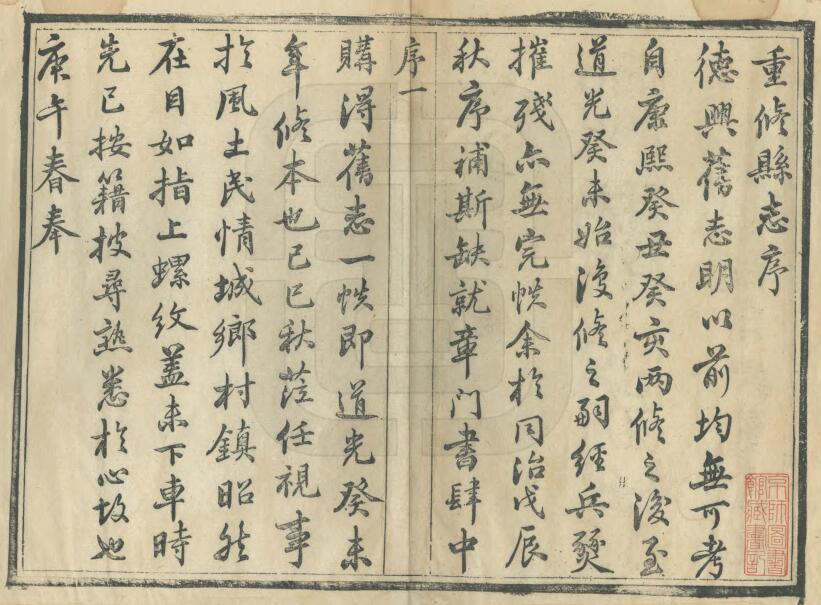 重修縣志序
德興舊志明以前均無可考
自康熙癸丑癸亥兩修之後至
道光癸未始復修之嗣經兵燹
摧殘亦無完帙余於同治戊辰
秋序補斯缺就章門書肆中
序一
購得舊志一帙即道光癸未
年修本也己巳秋蒞任視事
於風土民情城鄉村鎮昭然
在目如指上螺紋蓋未下車時
先已按籍披尋熟悉於心故也
庚午春奉
京師圖書
館藏書印